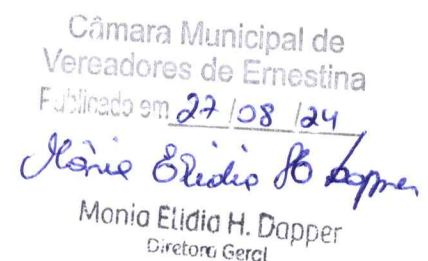 Câmara Municipal de
Vereadores de Ernestina
Publicado em 27/08/24
Mônia Elidia H Dapper
Monia Elidia H. Dapper
Diretora Geral